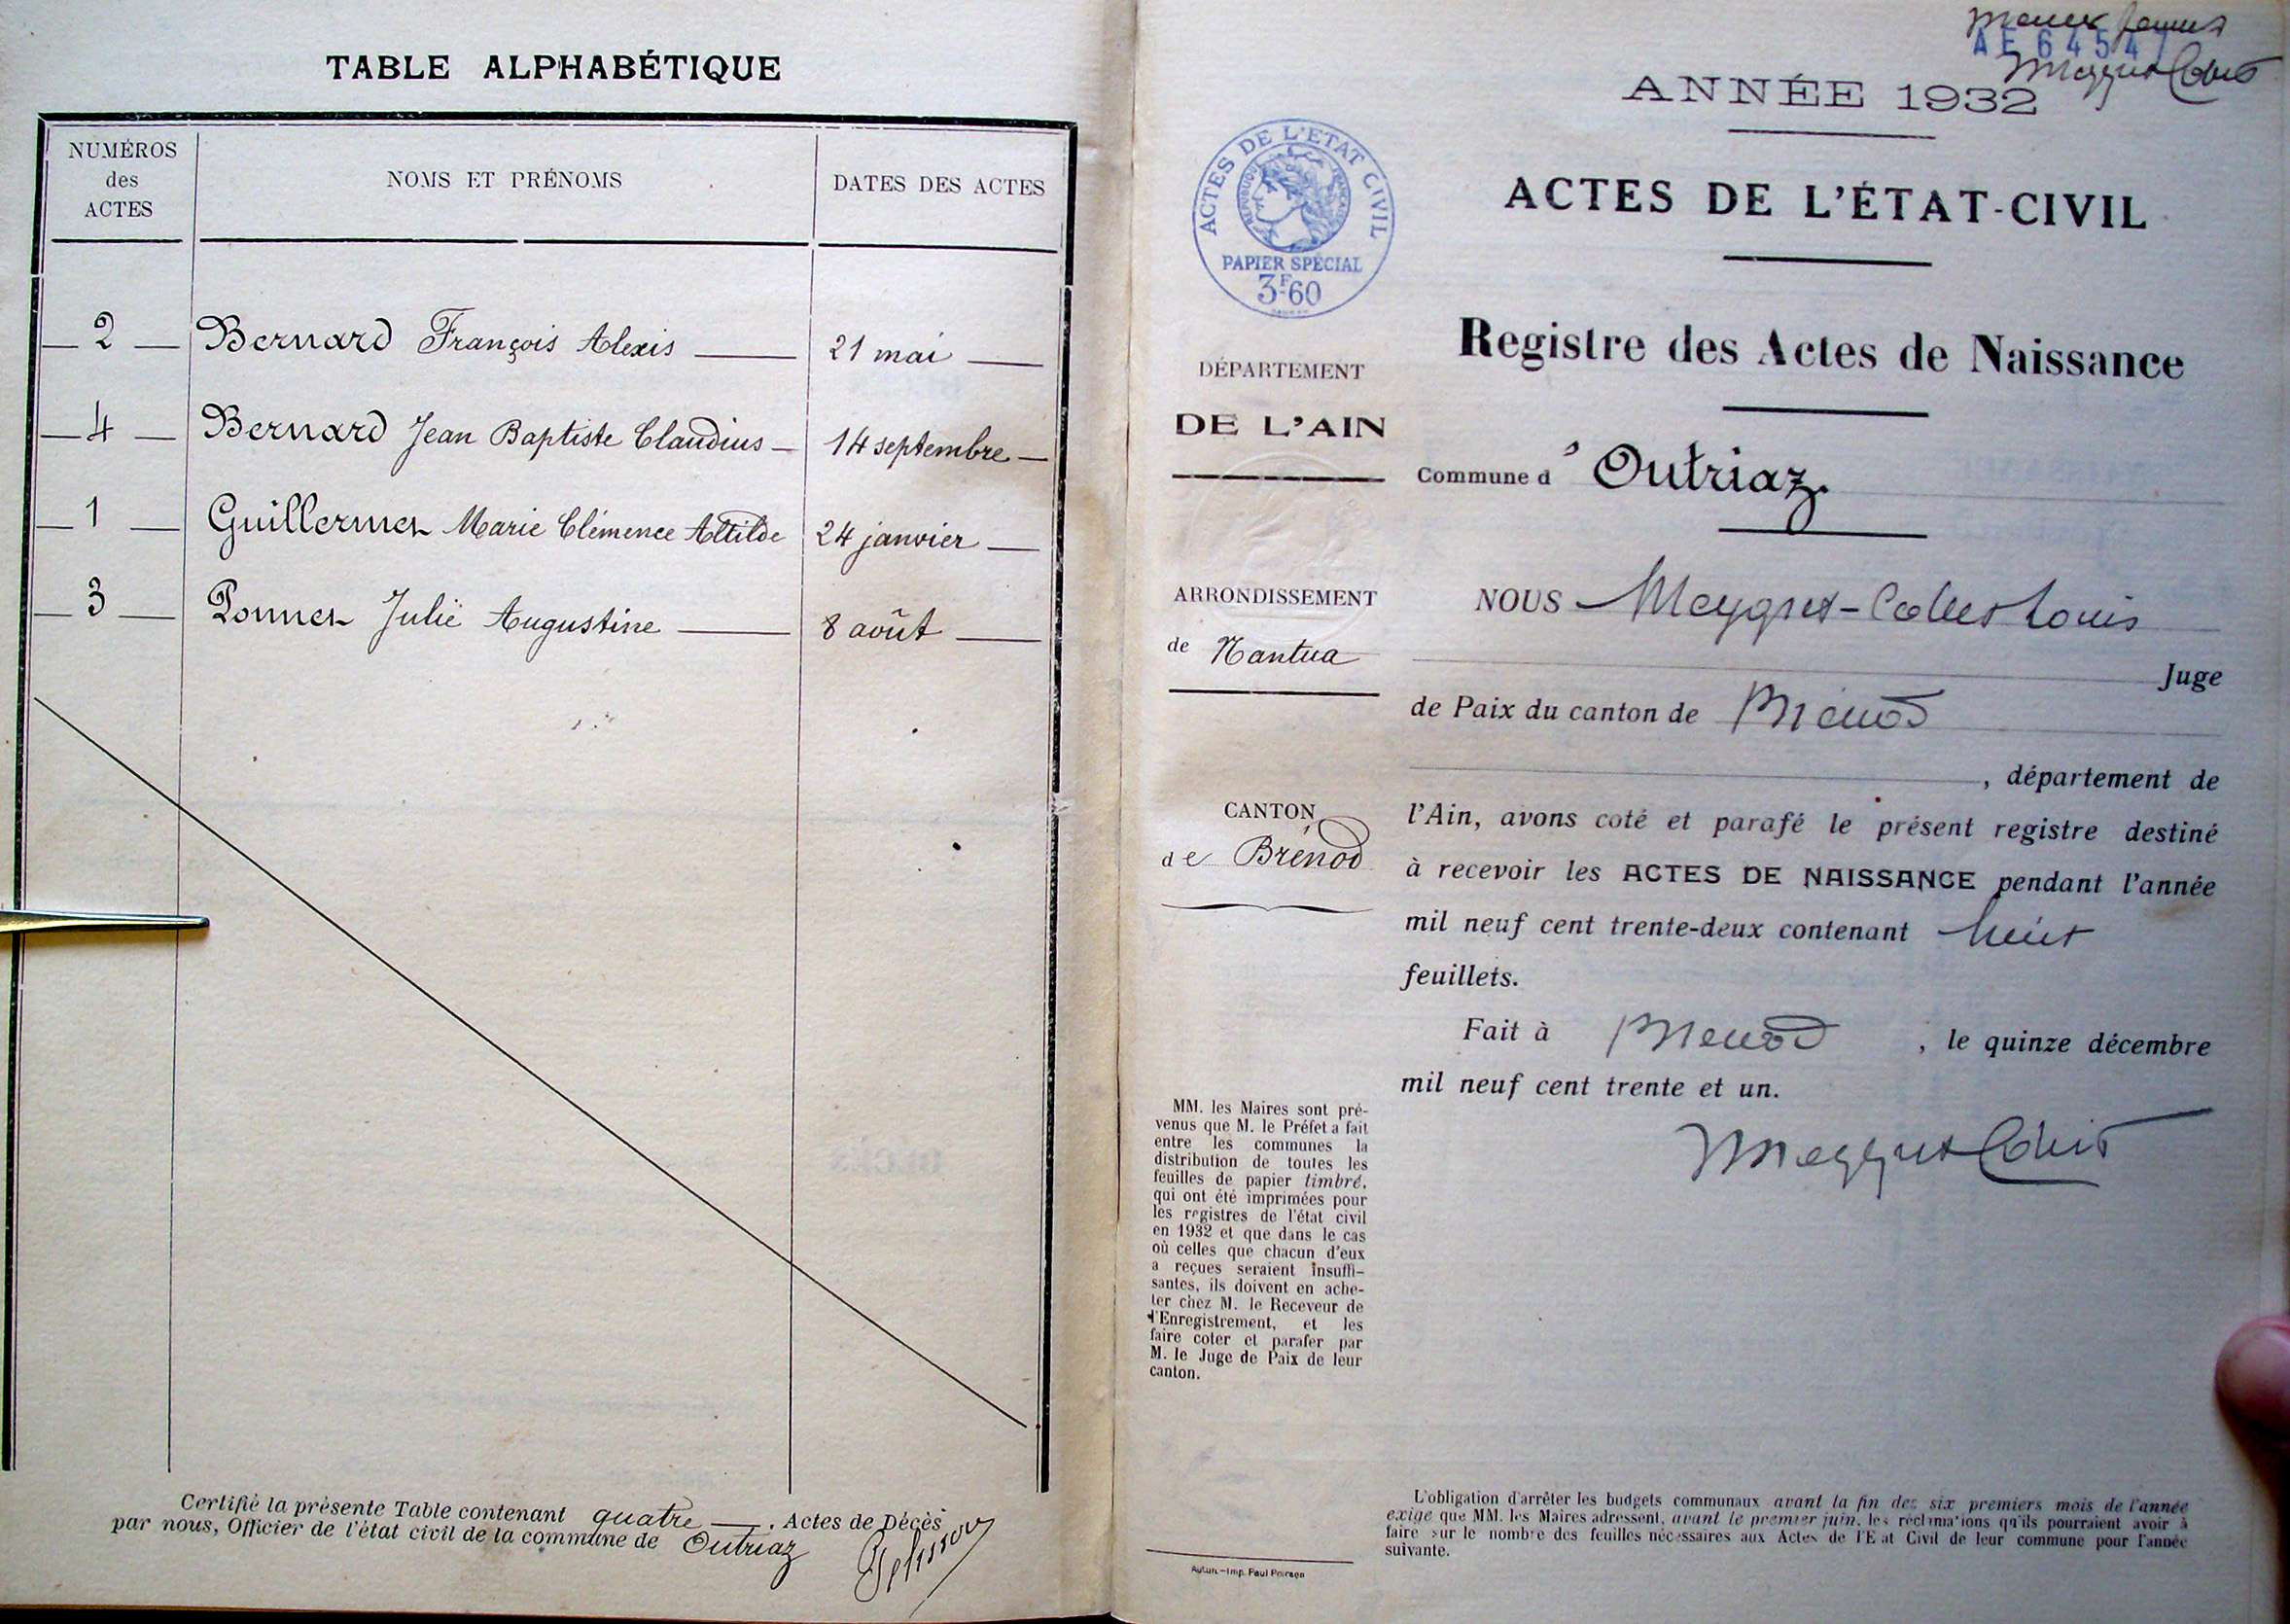 TABLE ALPHABÉTIQUE
NUMÉROS
des
ACTES
NOMS ET PRÉNOMS
DATES DES ACTES
2 Bernard François Alexis 21 mai
4 Bernard Jean Baptiste Claudius 14 septembre
1 Guillermet Marie Clémence Altilde 24 janvier
3 Ponnet Julie Augustine 8 août
Certifié la présente Table contenant quatre . Actes de Décès
par nous, Officier de l'état civil de la commune de Outriaz
AE 6454
ANNÉE 1932
ACTES DE L'ÉTAT CIVIL
RÉPUBLIQUE FRANÇAISE
PAPIER SPÉCIAL
3F60
ACTES DE L'ÉTAT-CIVIL
Registre des Actes de Naissance
DÉPARTEMENT
DE L'AIN
Commune d'Outriaz
ARRONDISSEMENT
de Nantua
CANTON
de Brénod
NOUS Meygret-Collet Louis
Juge
de Paix du canton de Brénod
, département de
l'Ain, avons coté et parafé le présent registre destiné
à recevoir les ACTES DE NAISSANCE pendant l'année
mil neuf cent trente-deux contenant huit
feuillets.
Fait à Brénod , le quinze décembre
mil neuf cent trente et un.
Meygret Collet
MM. les Maires sont pré-
venus que M. le Préfet a fait
entre les communes la
distribution de toutes les
feuilles de papier timbré,
qui ont été imprimées pour
les registres de l'état civil
en 1932 et que dans le cas
où celles que chacun d'eux
a reçues seraient insuffi-
santes, ils doivent en ache-
ter chez M. le Receveur de
l'Enregistrement, et les
faire coter et parafer par
M. le Juge de Paix de leur
canton.
L'obligation d'arrêter les budgets communaux avant la fin des six premiers mois de l'année
exige que MM. les Maires adressent, avant le premier juin, les réclamations qu'ils pourraient avoir à
faire sur le nombre des feuilles nécessaires aux Actes de l'Etat Civil de leur commune pour l'année
suivante.
Autun.-Imp. Paul Poirson